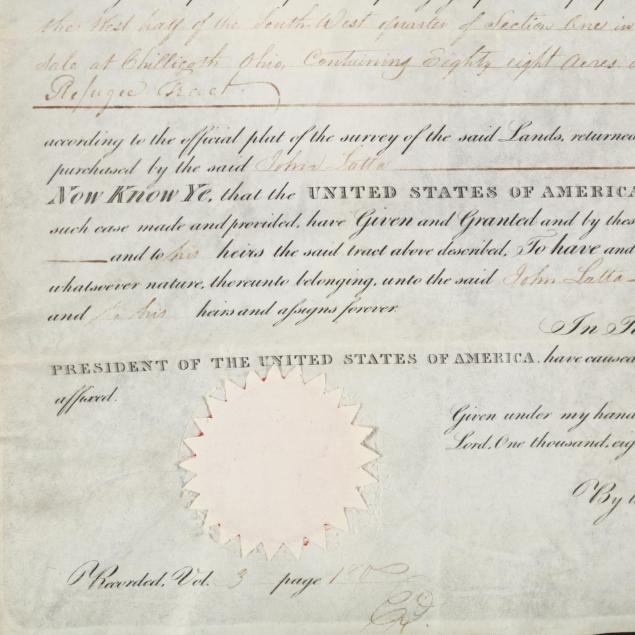 the West half of the South West quarter of Section One in
sale at Chillicoth Ohio, Containing Eighty eight Acres
Refugee Tract.
according to the official plat of the survey of the said Lands, returned
purchased by the said John Latta
Now Know Ye, that the UNITED STATES OF AMERICA
such case made and provided, have Given and Granted and by thes
and to his heirs the said tract above described, To have and
whatsoever nature, thereunto belonging, unto the said John Latta
and to his heirs and assigns forever.
In T
PRESIDENT OF THE UNITED STATES OF AMERICA, have caused
affixed.
Given under my hand
Lord, One thousand, eig
By t
Recorded, Vol. 3 page